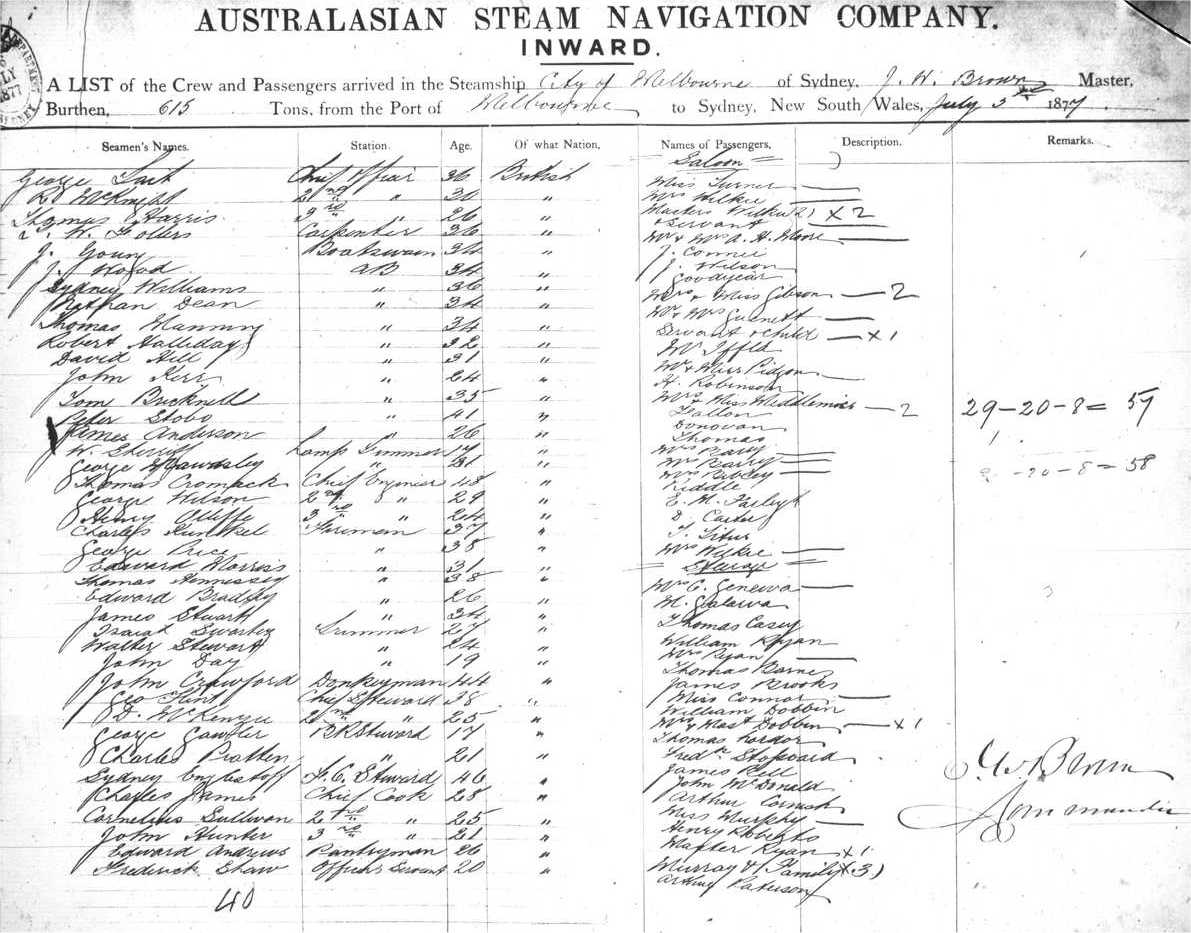 AUSTRALASIAN STEAM NAVIGATION COMPANY.
INWARD.
A LIST of the Crew and Passengers arrived in the Steamship City of Melbourne of Sydney, J. W. Brown Master,
Burthen, 615 Tons, from the Port of Melbourne to Sydney, New South Wales, July 3rd 1877
Seamen's Names. Station. Age. Of what Nation. Names of Passengers. Description. Remarks.
Saloon
George Chief Officer 36 British
R. McKnight 2nd " 30 "
Thomas Harris 3rd " 26 "
W. Carpenter 36 "
J. Young Boatswain 34 "
J. Wood AB 34 "
Sydney Williams " 36 "
Nathan Dean " 34 "
Thomas Manning " 34 "
Robert Halliday " 32 "
David Hill " 31 "
John Kerr " 24 "
Tom Bucknell " 35 "
Peter Stobo " 41 "
James Anderson " 26 "
W. Sherriff Lamp Trimmer 17 "
George Mawdsley "
Thomas Cromack Chief Engineer 48 "
George Wilson 2nd " 29 "
Henry Olliffe 3rd " 24 "
Charles Kunkel Fireman 37 "
George Price " 38 "
Edward Morris " 31 "
Thomas Hennessey " 38 "
Edward Bradley " 26 "
James Stuart " 34 "
Isaiah Swarbey Trimmer 27 "
Walter Stewart " 24 "
John Day " 19 "
John Crawford Donkeyman 44 "
Geo Flint Chief Steward 28 "
D. McKenzie 2nd " 25 "
George Gawler BR Steward 17 "
Charles Pratten " 21 "
Sydney F.C. Steward 46 "
Charles James Chief Cook 28 "
Cornelius Sullivan 2nd " 25 "
John Hunter 3rd " 21 "
Edward Andrews Pantryman 26 "
Frederick Shaw Officers Servant 20 "
40
Miss Turner
Mrs Wilkie
Masters Wilkie (2) x 2
& Servant
Mr & Mrs A. H. Moore
J. Connel
J. Wilson
Goodyear
Mrs & Miss Gibson — 2
Mr & Mrs Garnett
Servant & child — x 1
Mr Iffla
Mr & Miss Pidgeon
H. Robinson
Mrs & Miss Middlemiss — 2
Fallon
Donovan
Thomas
Mrs Barry
Mrs Barry
Mrs Bibley
Riddle
E. M. Farleigh
D. Carter
T. Titus
Mrs Wilkie
Steerage
Mrs C. Geneiva
M. Galarva
Thomas Casey
William Ryan
Mrs Ryan
Thomas Barne
James Brooks
Miss Connor
William Dobbin
Mrs & Mast Dobbin — x 1
Thomas Lordon
Fredk Stoppard
James Bell
John McDonald
Arthur Cornish
Miss Murphy
Henry Roberts
Walter Ryan x 1
Murray & Family (x 3)
Arthur Paterson
29-20-8 = 57
-20-8 = 58
J. W. Brown
Commander